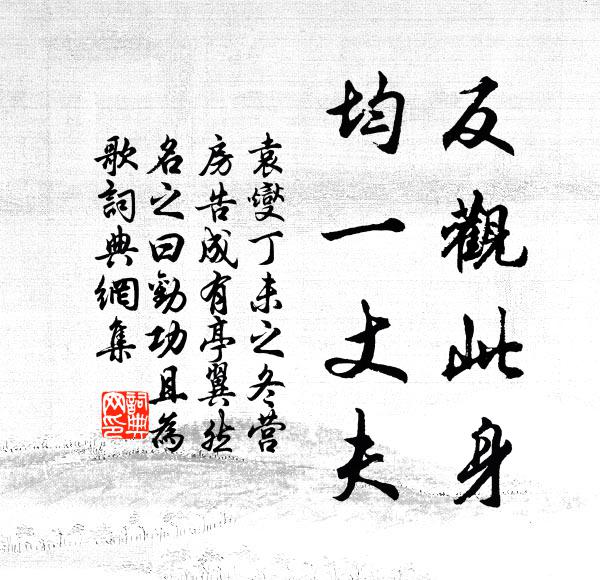 反觀此身
均一丈夫
袁燮丁未之冬營
房告成有亭翼然
名之曰勸功且為
歌詞典網集
詞典
網印